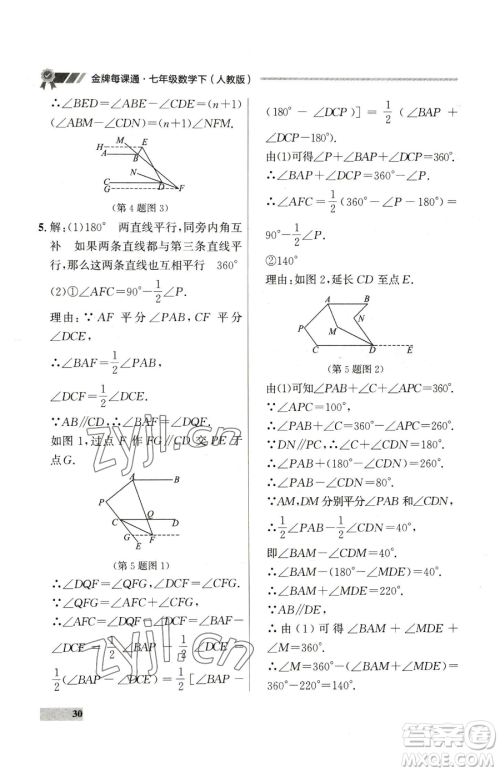 金牌每课通·七年级数学下(人教版)
∴∠BED=∠ABE-∠CDE=(n+1)
(∠ABN-∠CDN)=(n+1)∠NFM.
M E
A B
N
C D
G F
(第4题图3)
5. 解:(1)180° 两直线平行,同旁内角互
补 如果两条直线都与第三条直线平
行,那么这两条直线也互相平行 360°
(2)①∠AFC=90°-1/2∠P.
理由:∵AF平分∠PAB,CF平分
∠DCE,
∴∠BAF=1/2∠PAB,
∠DCF=1/2∠DCE.
∵AB∥CD,∴∠BAF=∠DQF.
如图1,过点F作FG∥CD交PE于
点G.
A B
P
C Q D
F
E
(第5题图1)
∴∠DQF=∠QFG,∠DCF=∠CFG.
∴∠AFC=∠QFG-∠CFG=
∠QFG-∠DCF=∠BAF-
∠DCF=1/2∠BAP-1/2∠DCE=
1/2(∠BAP-∠DCE)=1/2[∠BAP-
30
(180°-∠DCP)]=1/2(∠BAP+
∠DCP-180°).
由(1)可得∠BAP+∠P+
∠DCP=360°.
∴∠BAP+∠DCP=360°-∠P.
∴∠AFC=1/2(360°-∠P-180°)=
90°-1/2∠P.
②140°
理由:如图2,延长CD至点E.
A B
M N
P
C D E
(第5题图2)
由(1)可知∠PAB+∠C+∠P=360°.
∵∠APC=100°,
∴∠PAB+∠C=360°-∠APC=260°.
∵DN∥PC,∴∠C=∠CDN.
∴∠PAB+∠CDN=260°.
∵AM,DM分别平分∠PAB和∠CDN,
∴1/2∠PAB-1/2∠CDN=40°,
即∠BAM-∠CDM=40°.
∴∠BAM+∠MDE=∠BAM+
180°-∠CDM=220°.
∵AB∥DE,
∴由(1)可得∠BAM+∠MDE+
∠M=360°.
∴∠M=360°-(∠BAM+
∠MDE)=140°.
zyjl.cn
zyjl.cn
作业精灵